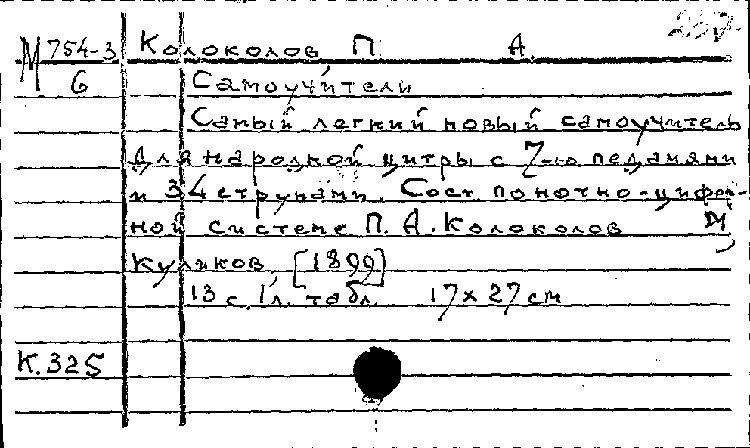 М 754-3
6
Колоколов, П. А.
Самоучители
Самый легкий новый самоучитель
для народной цитры с 7-ю педалями
и 34 струнами. Сост. по нотно-цифр-
ной системе П. А. Колоколов М,
Куликов, [1899]
13 с. 1 л. табл. 17x27 см
К.325